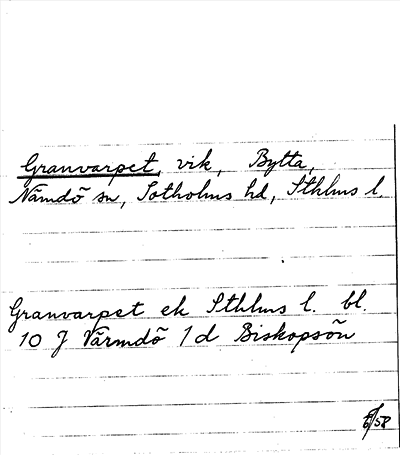 Granvarpet, vik, Bytta,
Nämdö sn, Sotholms hd, Sthlms l.
Granvarpet ek Sthlms l. bl.
10 J Värmdö 1 d Biskopsön
/58